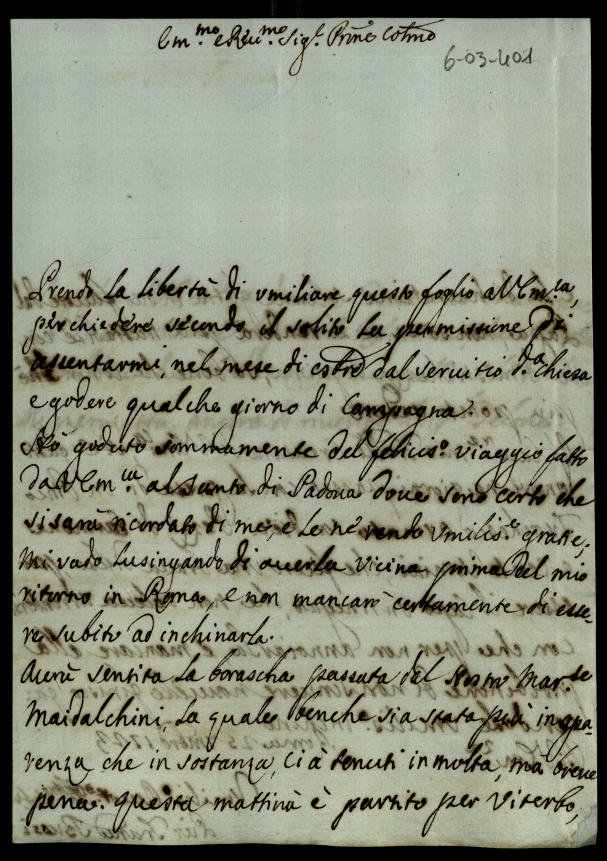 Em.mo e Rev.mo Sig.r Prñe Colmo
6-03-401
Prendo la libertà di umiliare questo foglio all'Em.za,
per chiedere secondo il solito la permissione di
assentarmi, nel mese di 8bre dal servitio d.a Chiesa
e godere qualche giorno di Campagna.
Hò goduto sommamente del felicis.o viaggio fatto
da V Em.za al Santo di Padoua doue sono certo che
si sarà ricordato di me, è Le nè rendo vmilis.e gratie;
mi vado lusingando di auerla vicina prima del mio
ritorno in Roma, e non mancarò certamente di esse-
re subito ad inchinarla.
Aurà sentita la borascha passata dal Nostro Mar.se
Maidalchini, la quale benche sia stata più in apa-
renza che in sostanza, ci à tenuti in molta, mà breue
pena. questa mattina è partito per Viterbo,